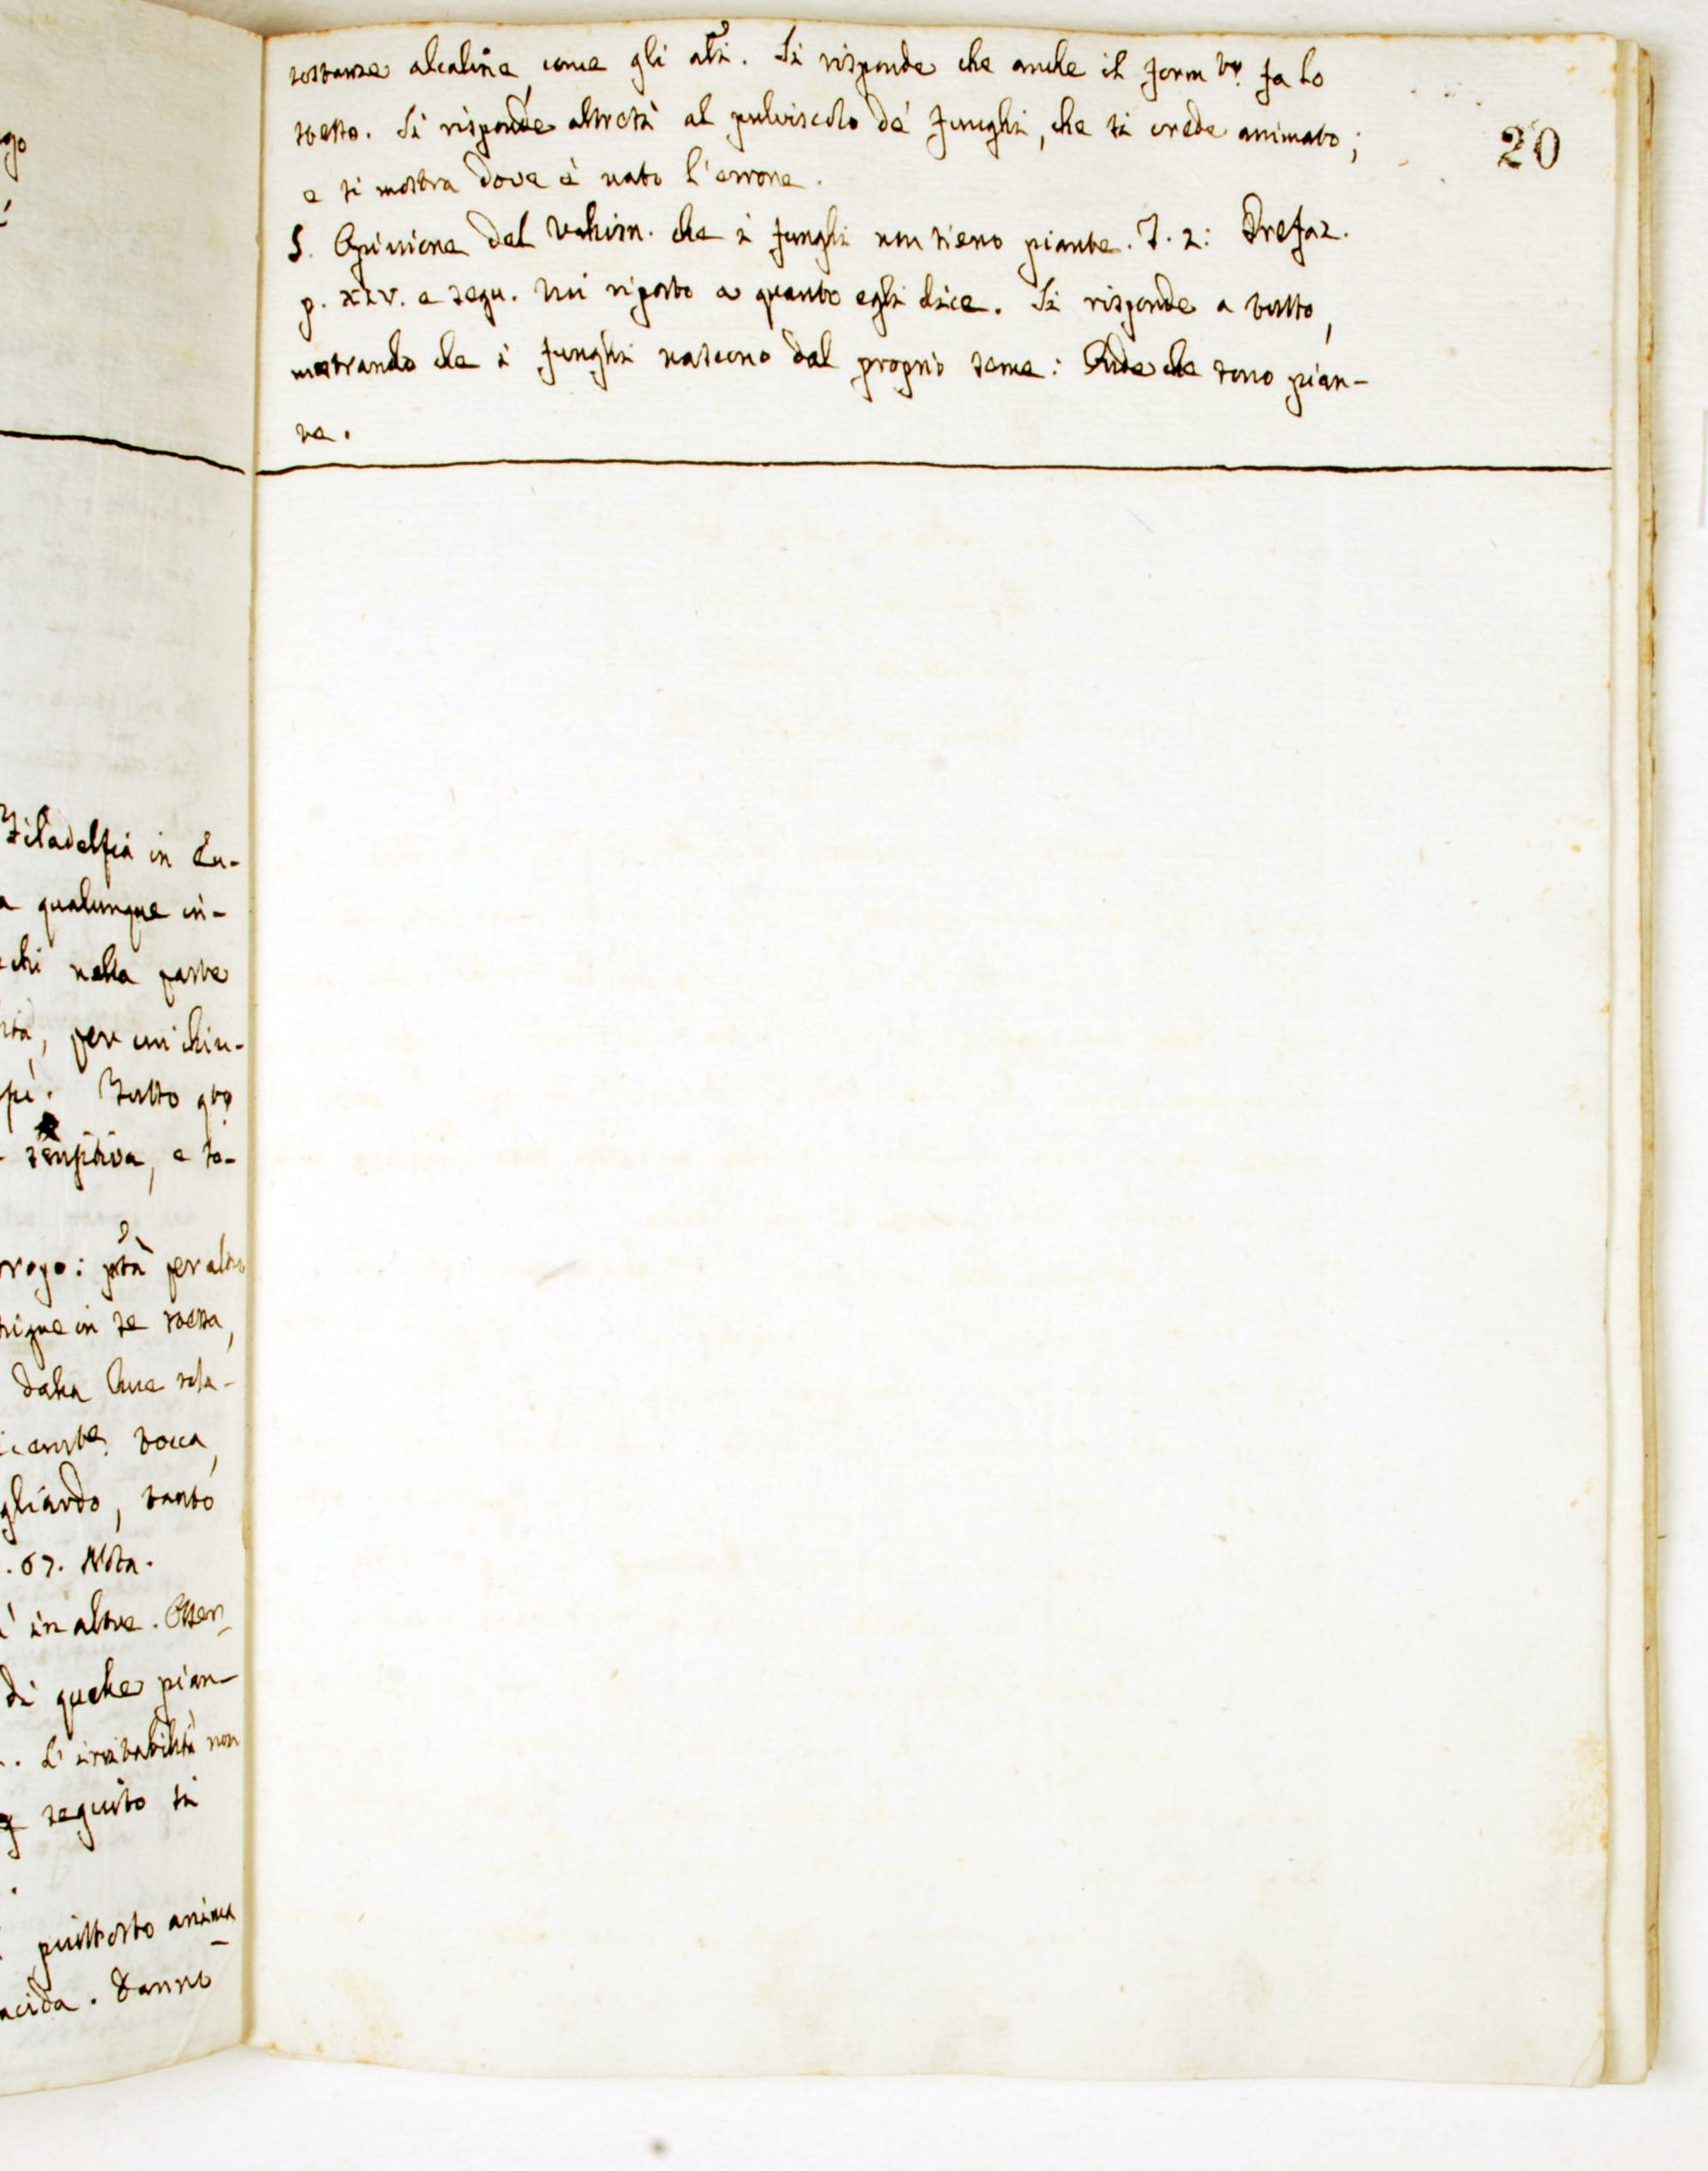 sostanze alcaline, come gli altri. Si risponde che anche il form.to fa lo
stesso. Si risponde altresì al pulviscolo de' funghi, che si crede animato;
e si mostra dove è nato l'errore.
20
S. Opinione del che i funghi non sieno piante. T. 2: Prefaz.
p. XIV. e segu. Mi riporto a quanto egli dice. Si risponde a tutto,
mostrando che i funghi nascono dal proprio seme: Onde che sono pian-
te.
go
Filadelfia in Eu-
a qualunque in-
chi nella parte
per un chiu-
pi. Tutto q.to
sensitiva, e so-
rogo: per altro
in se stessa,
dalla
tocca,
gliardo, tanto
. 67. Nota.
in altre. Osser
di quelle pian-
. L'irritabilità non
seguito si
piuttosto anima
acida. Danno